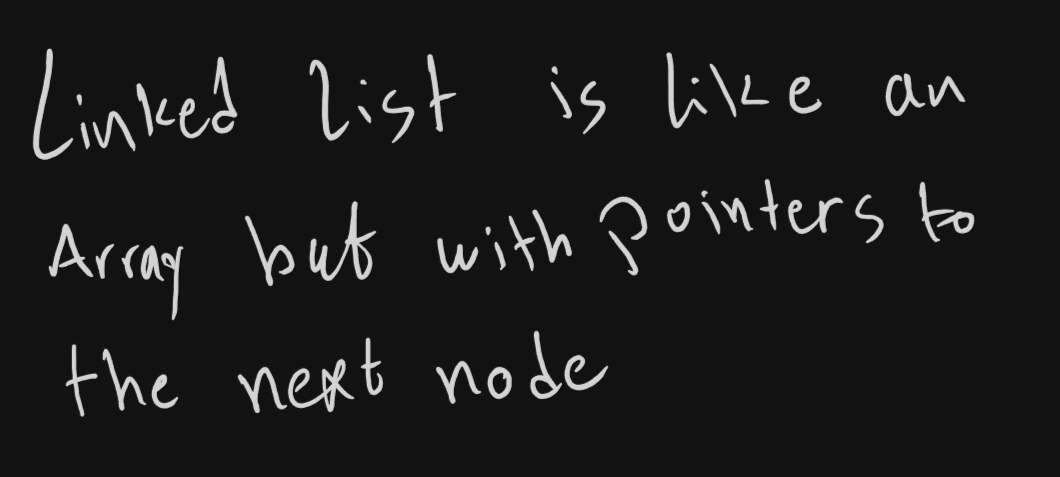 Linked list is like an
Array but with pointers to
the next node